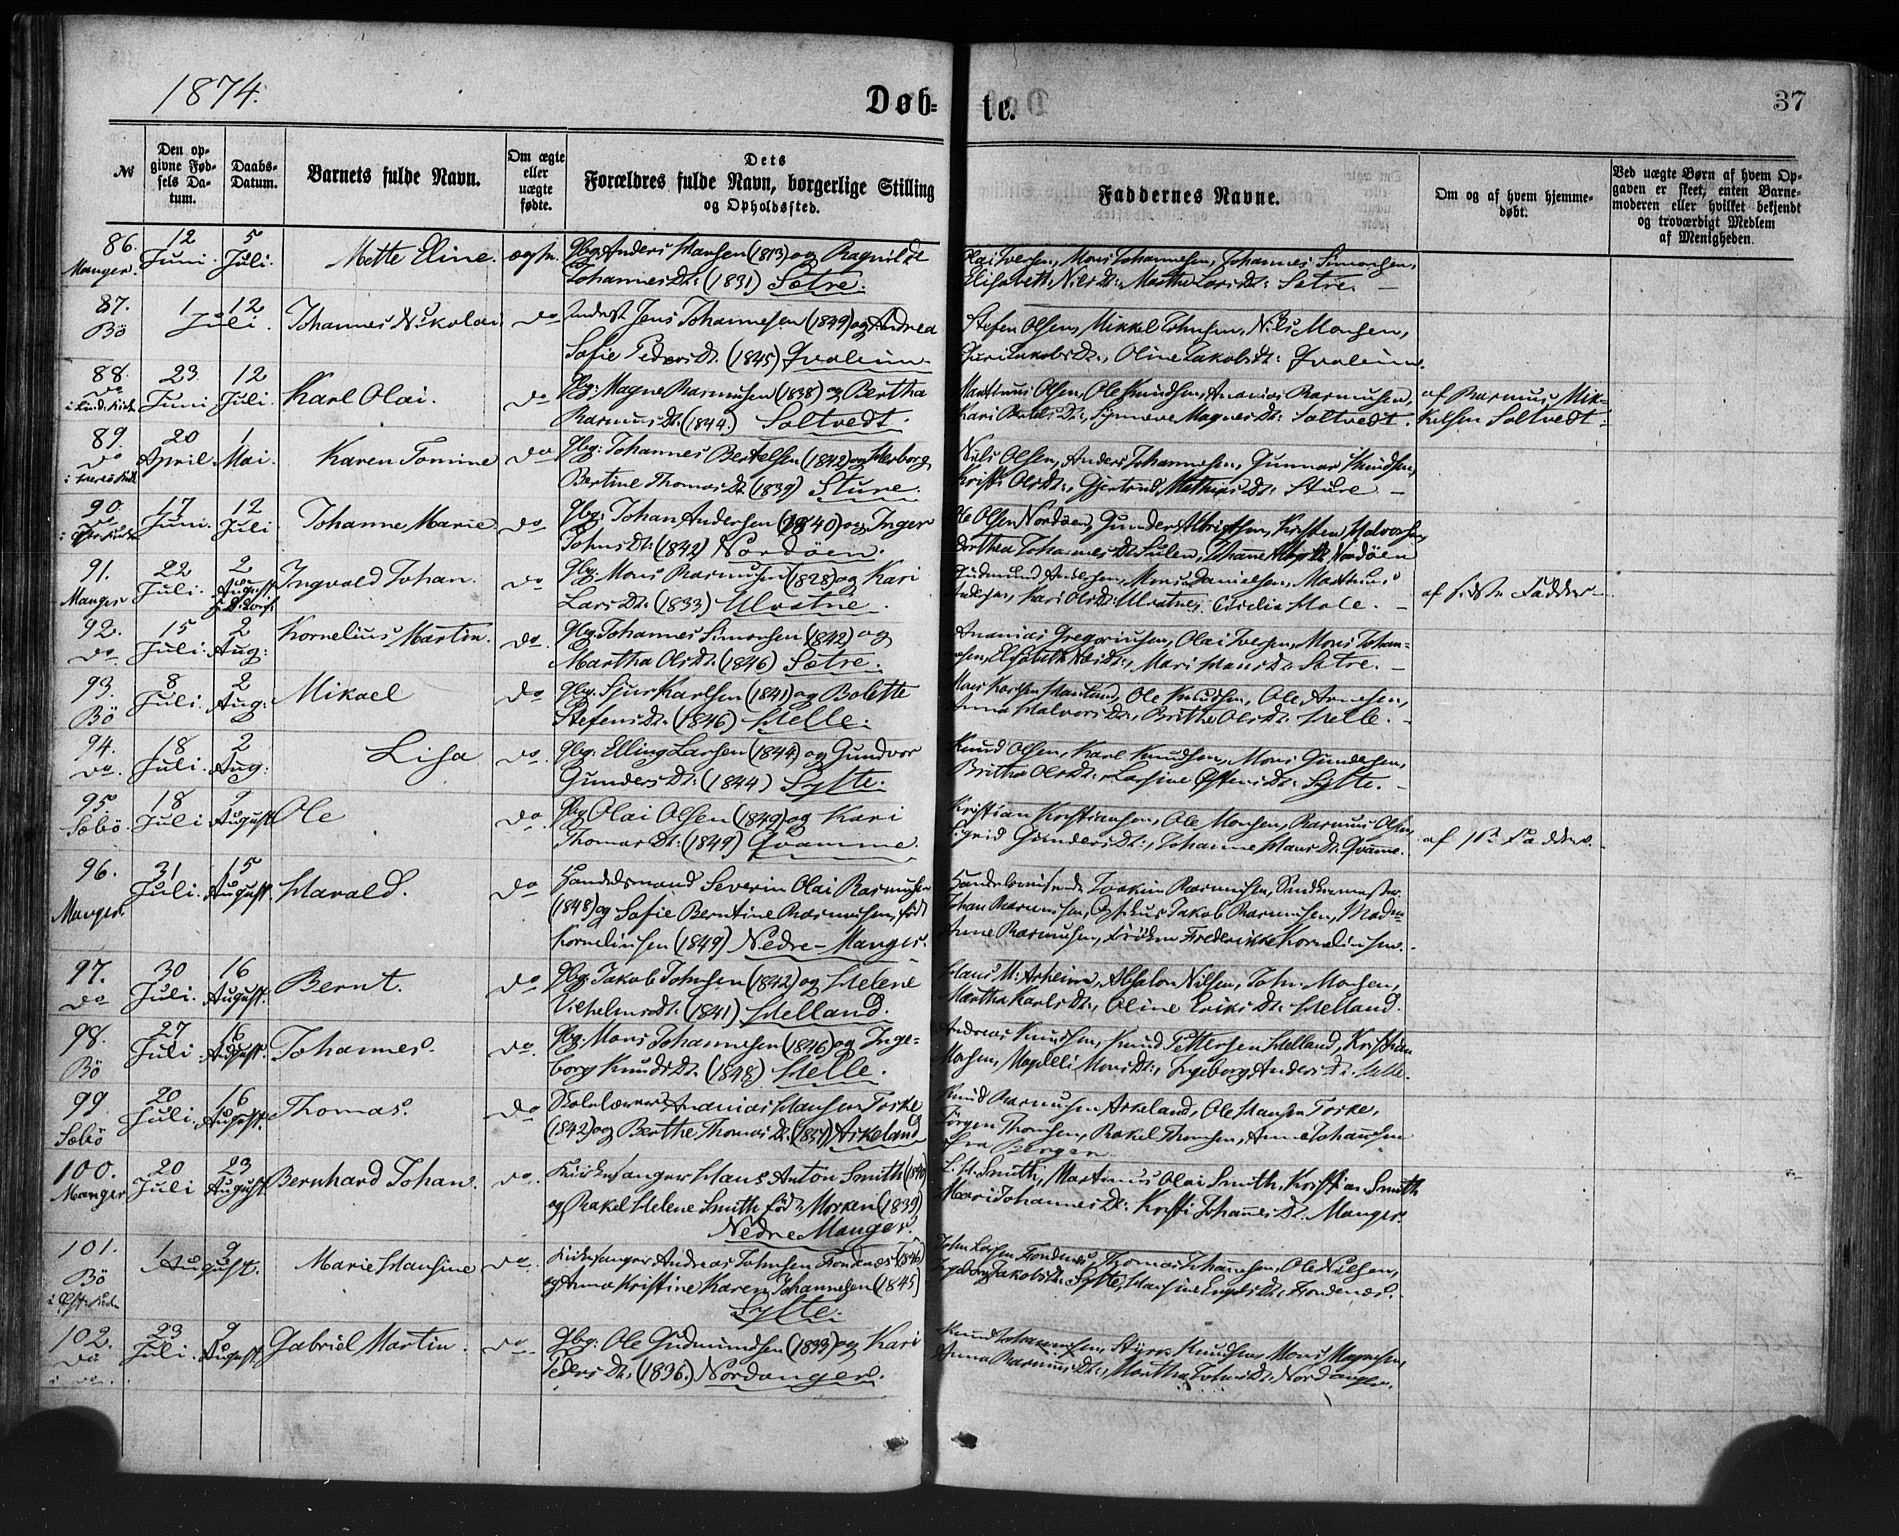 1874.
Døb-
te.
37
№
Den op-
givne Fød-
sels Da-
tum.
Daabs-
Datum.
Barnets fulde Navn.
Om ægte
eller
uægte
fødte.
Dets
Forældres fulde Navn, borgerlige Stilling
og Opholdssted.
Faddernes Navne.
Om og af hvem hjemme-
døbt.
Ved uægte Børn af hvem Op-
gaven er skeet, enten Barne-
moderen eller hvilket bekjendt
og troværdigt Medlem
af Menigheden.
86. 12 5
Manger. Juni. Juli. Mette Eline. Gbg: Anders Hansen (1813) og Ragnilde
Johannes Dt: (1831) Sætre.
Olai Iversen, Mons Johannesen, Johannes Simonsen,
Elisabeth Nils Dt:, Martha Lars Dt: Sætre.
87. 1 12
Bö Juli. Johannes Nikolai do Jens Johannesen (1849) og Andrea
Sofie Peders Dt. (1845) Qvaleim
Stefen Olsen, Mikkel Johnsen, Nils Monsen,
Guri Jakobs Dt., Oline Jakobs Dt: Qvaleim.
88. 23 12
do Juni Juli. Karl Olai. do Gbg: Magne Rasmussen (1838) og Bertha
Rasmus Dt. (1844.) Soltvedt.
Martinus Olsen, Ole Knudsen, Ananias Rasmussen,
Kari Dt:, Synneve Magnes Dt: Soltvedt.
af Rasmus Mik-
kelsen Soltvedt.
89. 20 1
do April Mai. Karen Tomine do Gbg: Johannes Bertelsen (1842) og Herborg
Bertine Thomas Dt. (1839) Sture.
Nils Olsen, Anders Johannesen, Gunnar Knudsen,
Kristi Ols Dt:, Gjertrud Mathias Dt: Sture
90. 17 12
do Juni. Juli Johanne Marie. do Gbg: Johan Andersen (1840) og Inger
Johns Dt: (1842) Nordöen.
Ole Olsen Nordöen, Gunder Kristen Halvorsen,
Dorthea Johannes Dt: Sulen, Johanne Nordöen
91. 22 2
Manger Juli. August Ingvald Johan. do Gbg: Mons Rasmussen (1828) og Kari
Lars Dt: (1833) Ulvatne.
Gudmund Andersen, Mons Danielsen, Martinus
Andersen, Kari Ols Dt: Ulvatne, Cecilia Hole.
af sidste Fadder
92. 15 2
do Juli. Aug: Kornelius Martin. do. Gbg. Johannes Simonsen (1842) og
Martha Ols Dt. (1846) Sætre.
Ananias Gregoriusen, Olai Iversen, Mons Johan-
nesen, Elisabeth Nils Dt:, Mari Hans Dt: Sætre.
93. 8 2
Bö Juli. Aug: Mikael do Gbg. Sjur Karlsen (1841) og Bolette
Stefens Dt. (1846) Helle.
Mons Karlsen, Ole Knudsen, Ole Arnesen,
Anna Halvors Dt:, Britha Ols Dt: Helle.
94. 18 2
do. Juli. Aug: Lisa do. Gbg. Elling Larsen (1844) og Gundvor
Gunders Dt: (1844) Sylte.
Knud Olsen, Karl Knudsen, Mons Gundersen,
Britha Ols Dt:, Dt: Sylte.
95. 18 9
Sæbö. Juli August Ole do. Gbg. Olai Olsen (1849) og Kari
Thomas Dt: (1849) Qvamme.
Kristian Kristiansen, Ole Monsen, Rasmus Olsen,
Sigrid Gunders Dt:, Johanne Hans Dt: Qvamme.
af 1ste Fadder.
96. 31 15
Manger. Juli. August. Harald. do Handelsmand Severin Olai Rasmussen
(1848) og Sofie Berntine Rasmussen, född
Korneliusen (1849) Nedre-Manger.
Joakim Rasmussen,
Johan Rasmussen, Jakob Rasmussen, Madm
Anne Rasmussen, Fröken Frederikke Korneliusen.
97. 30 16
do Juli. August. Bernt. do. Gbg. Jakob Johnsen (1842) og Helene
Vilhelms dt: (1841) Helland.
Hans M: Askeim, Absalon Nilsen, John Monsen,
Martha Karls Dt:, Oline Eriks Dt: Helland.
98. 27 16
Bö Juli. August. Johannes. do. Gbg. Mons Johannesen (1846) og Inge-
borg Knuds Dt. (1848) Helle.
Andreas Knudsen, Knud Pettersen Helland, Kristian
Monsen, Magdeli Mons Dt:, Ingeborg Anders Dt. Helle.
99. 20 16
Sæbö Juli. August. Thomas. do Skolelærer Ananias Hansen Toske
(1842) og Berthe Thomas Dt. Askeland
Knud Rasmussen Askeland, Ole Hansen Toske,
Jörgen Thomsen, Rakel Thomsen, Anne Johannesen
fra Bergen
100. 20 23
Manger Juli August Bernhard Johan. do. Kirkesanger Hans Anton Smith (1840)
og Rakel Helene Smith född Morken (1839)
Nedre Manger.
L. H. Smith, Martinus Olai Smith, Kristian Smith
Mari Johannes Dt: Kristi Johannes Dt. Manger.
101. 1 9
Bö August. Marie Hansine do. Kirkesanger Andreas Johnsen Fondenes (1846)
og Anna Kristine Karen Johannesen (1845)
Sylte.
John Larsen Fondenes, Thomas Johannesen, Ole Nilsen,
Ingeborg Jakobs Dt: Sylte, Hansine Engels Dt: Fondenes.
102. 23 9
do Juli. August. Gabriel Martin. do. Gbg: Ole Gudmundsen (1839) og Kari
Peders Dt: (1836.) Nordanger.
Knud Johannesen, Styrk Knudsen, Mons Magnesen,
Anna Rasmus Dt:, Martha Johns Dt: Nordanger.